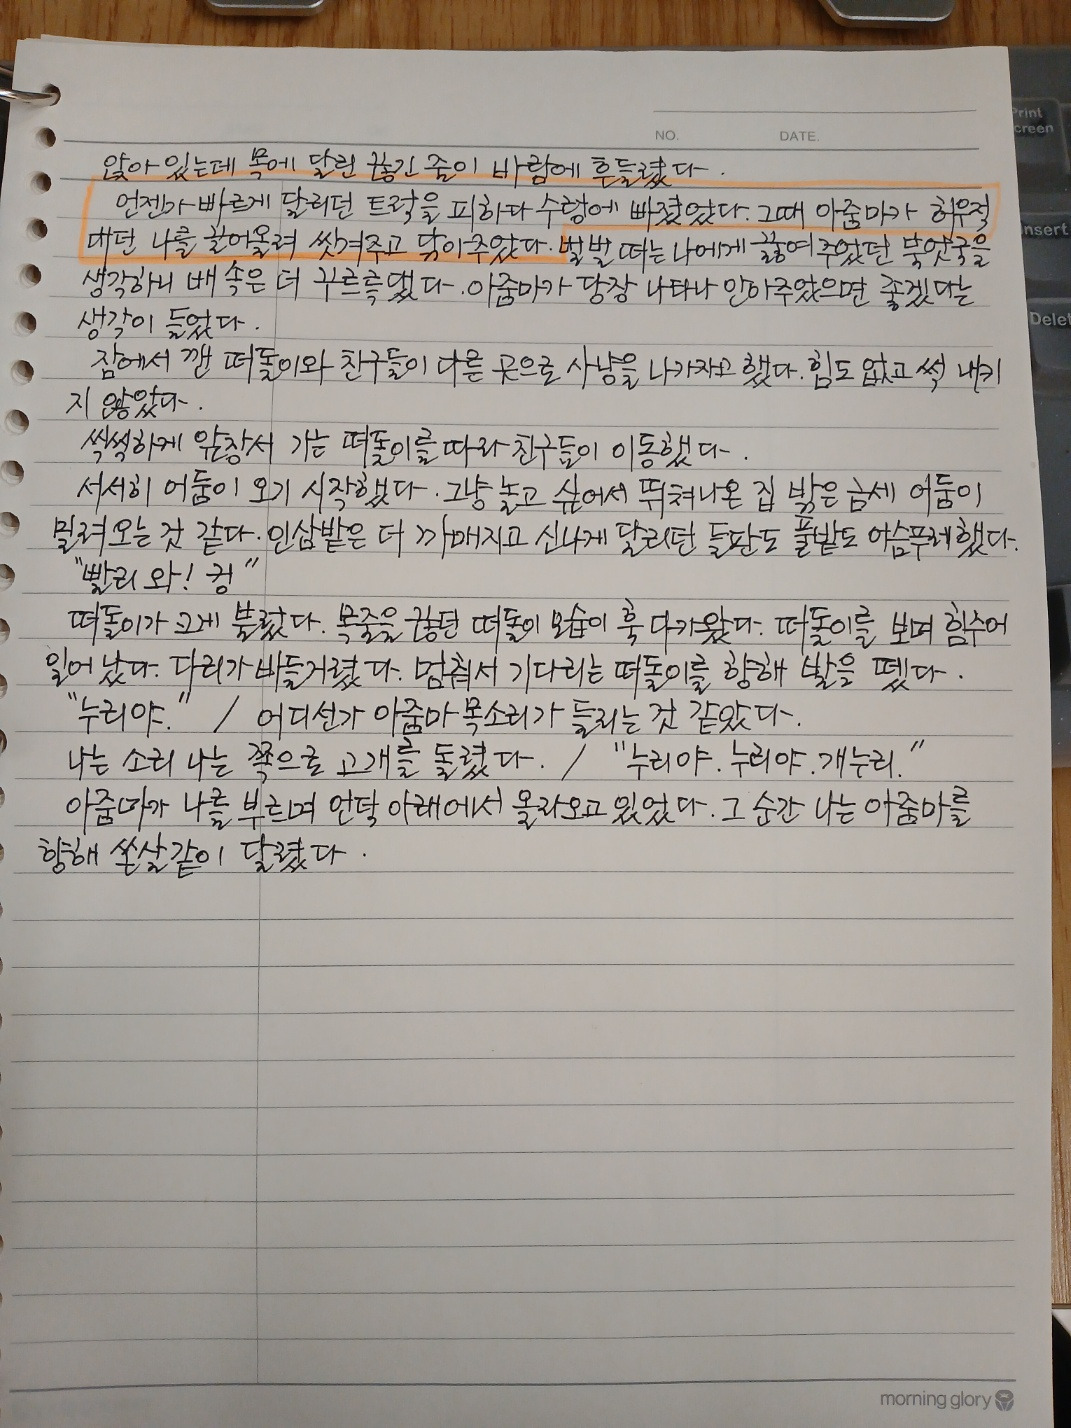 NO. DATE.
앉아 있는데 목에 달린 끊긴 줄이 바람에 흔들렸다.
언젠가 빠르게 달리던 트럭을 피하다 수렁에 빠졌었다. 그때 아줌마가 허우적
대던 나를 끌어올려 씻겨주고 닦아주었다. 벌벌 떠는 나에게 끓여주었던 북엇국을
생각하니 배 속은 더 꾸르륵댔다. 아줌마가 당장 나타나 안아주었으면 좋겠다는
생각이 들었다.
잠에서 깬 떠돌이와 친구들이 다른 곳으로 사냥을 나가자고 했다. 힘도 없고 썩 내키
지 않았다.
씩씩하게 앞장서 가는 떠돌이를 따라 친구들이 이동했다.
서서히 어둠이 오기 시작했다. 그냥 놀고 싶어서 뛰쳐나온 집 밖은 금세 어둠이
밀려오는 것 같다. 인삼밭은 더 까매지고 신나게 달리던 들판도 풀밭도 야슴푸레했다.
"빨리 와! 컹"
떠돌이가 크게 불렀다. 목줄을 끊던 떠돌이 모습이 훅 다가왔다. 떠돌이를 보며 힘주어
일어났다. 다리가 바들거렸다. 멈춰서 기다리는 떠돌이를 향해 발을 뗐다.
"누리야." / 어디선가 아줌마 목소리가 들리는 것 같았다.
나는 소리 나는 쪽으로 고개를 돌렸다. / "누리야. 누리야. 개누리."
아줌마가 나를 부르며 언덕 아래에서 올라오고 있었다. 그 순간 나는 아줌마를
향해 쏜살같이 달렸다.
morning glory
Print
Screen
Insert
Delet